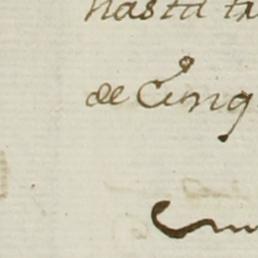 hasta
de Cinq